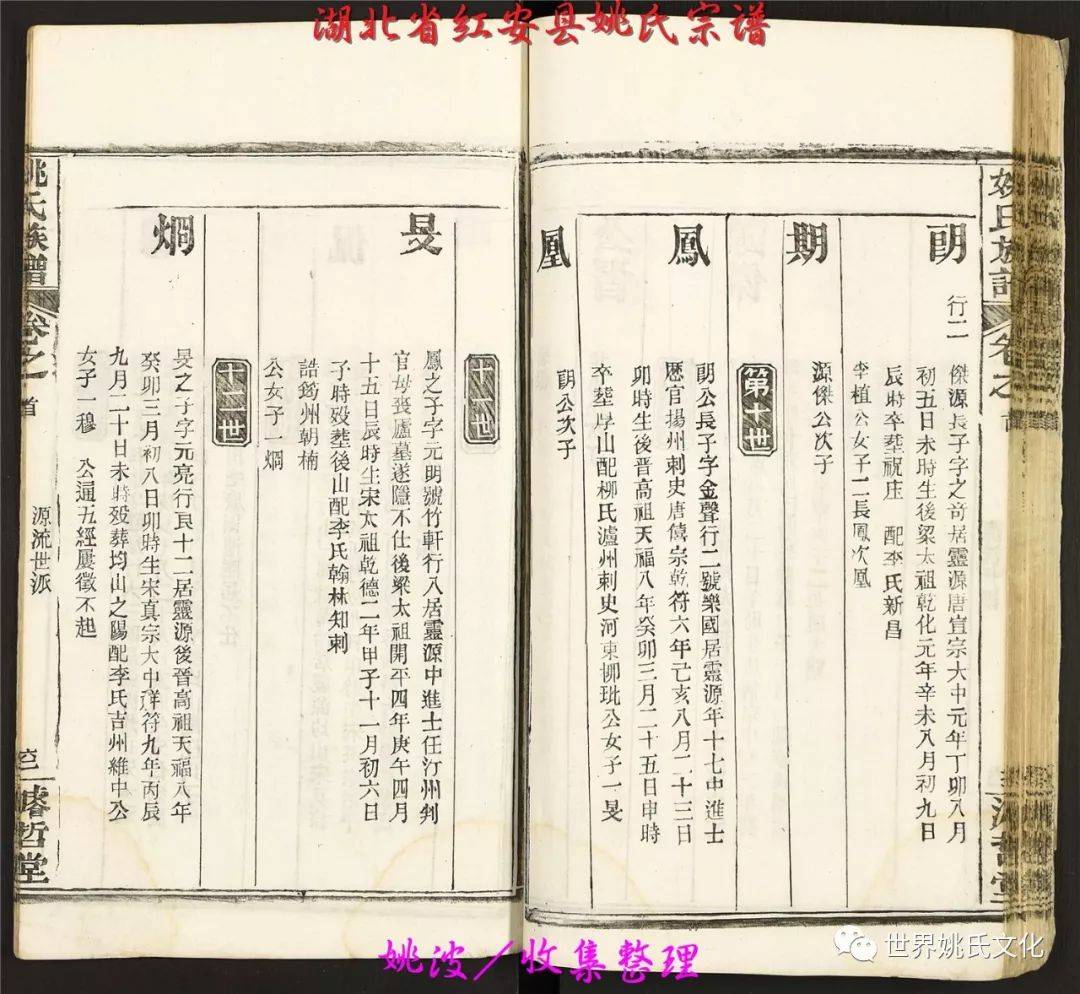 湖北省红安县姚氏宗谱
姚氏族譜
卷之
首
濬哲堂
朙
行二
傑源長子字之奇居靈源唐宣宗大中元年丁卯八月
初五日未時生後梁太祖乾化元年辛未八月初九日
辰時卒塟祝庄 配李氏新昌
李植公女子二長鳳次凰
期
源傑公次子
第十世
鳳
朙公長子字金聲行二號樂國居靈源年十七中進士
歷官揚州刺史唐僖宗乾符六年己亥八月二十三日
卯時生後晉高祖天福八年癸卯三月二十五日申時
卒塟厚山配柳氏瀘州刺史河東栁玭公女子一旻
凰
朙公次子
十一世
旻
鳳之子字元明號竹軒行八居靈源中進士任汀州判
官母喪廬墓遂隱不仕後梁太祖開平四年庚午四月
十五日辰時生宋太祖乾德二年甲子十一月初六日
子時殁塟後山配李氏翰林知刺
誥筠州朝楠
公女子一烱
十二世
烱
旻之子字元亮行艮十二居靈源後晉高祖天福八年
癸卯三月初八日卯時生宋真宗大中祥符九年丙辰
九月二十日未時殁葬均山之陽配李氏吉州維中公
女子一穆 公通五經屢徵不起
姚氏族譜
卷之
首
源流世派
濬哲堂
姚波／收集整理
世界姚氏文化